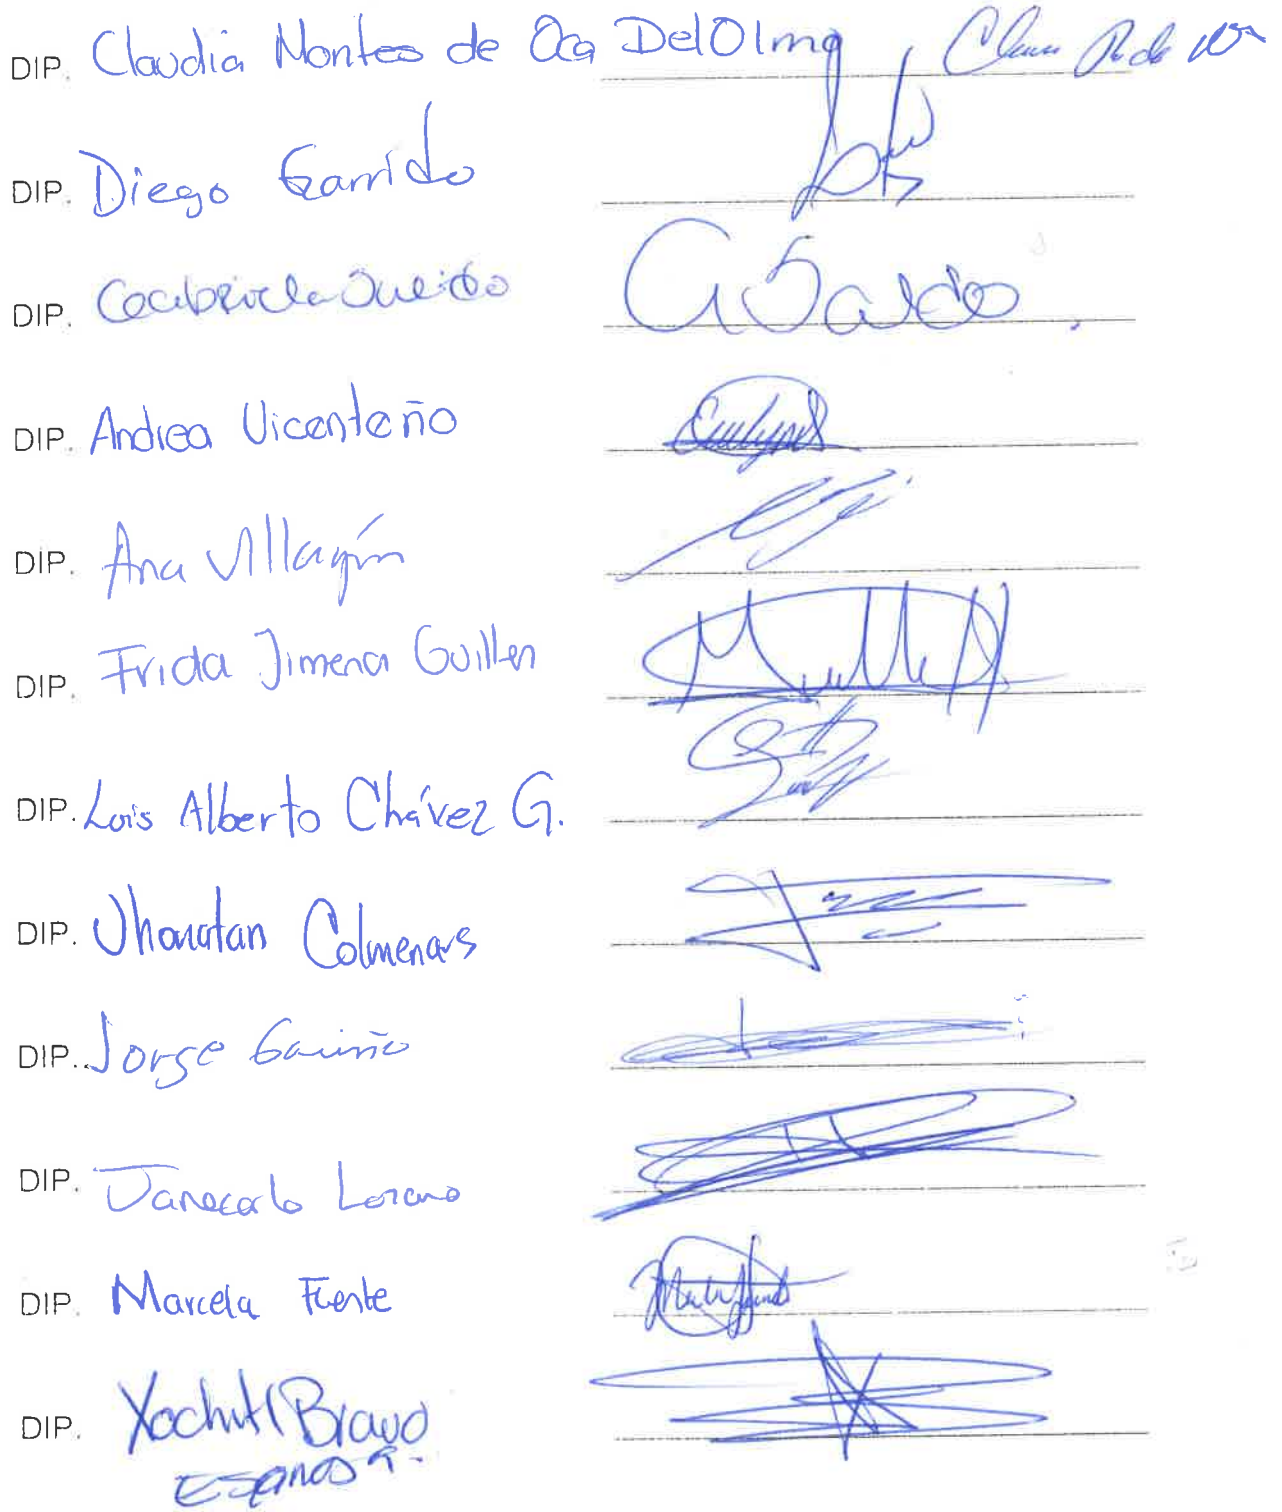 DIP. Claudia Montes de Oca Del Olmo
DIP. Diego Garrido
DIP. Gabriela Salido
DIP. Andrea Vicenteño
DIP. Ana Villagrán
DIP. Frida Jimena Guillen
DIP. Luis Alberto Chávez G.
DIP. Jhonatan Colmenares
DIP. Jorge Gaviño
DIP. Janecarlo Lozano
DIP. Marcela Fuente
DIP. Xochitl Bravo
Espinosa